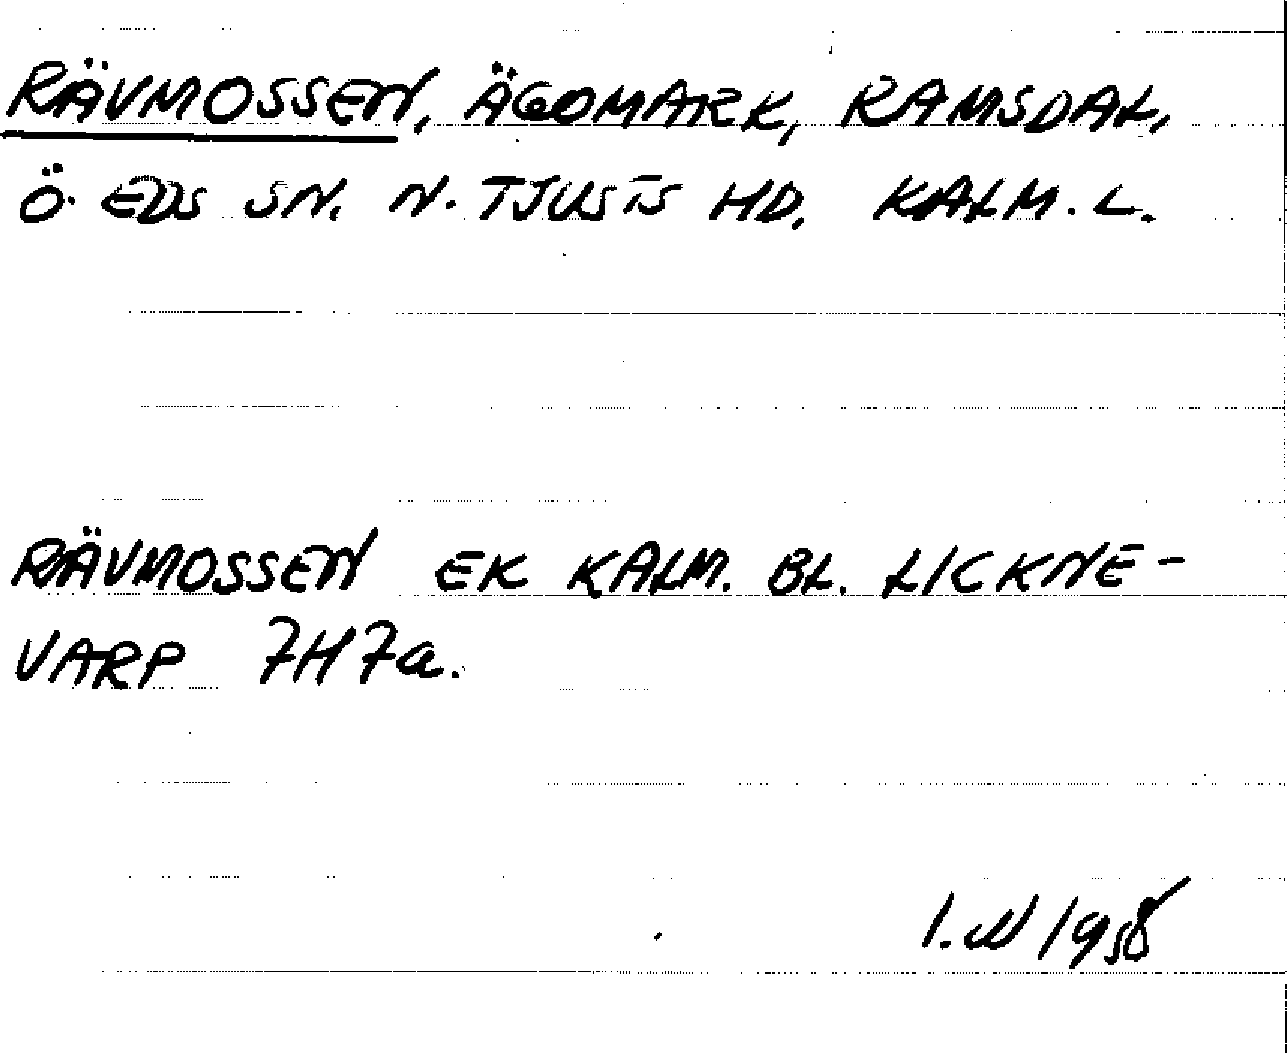 RÄVMOSSEN, ÄGOMARK, RAMSDAL,
Ö. EDS SN. N. TJUSTS HD. KALM. L.
RÄVMOSSEN EK KALM. BL. LICKNE-
VARP 7H7a.
1958